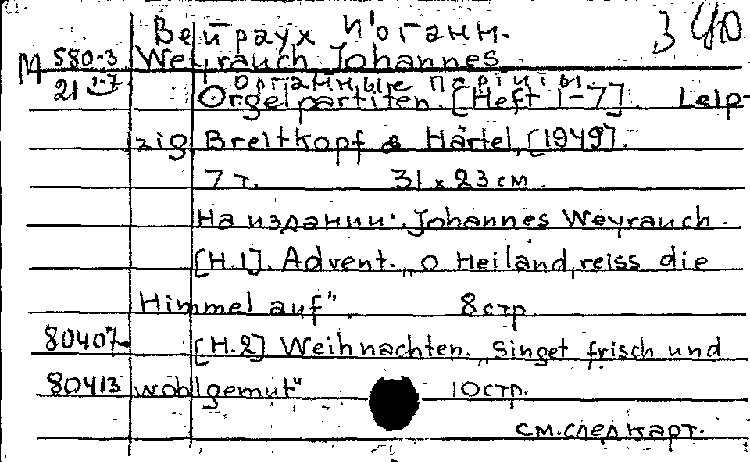 Вейраух Иоганн.
М 580-3 Weyrauch Johannes
21 1-7 Органные партиты.
Orgelpartiten. [Heft 1-7]. Leip-
zig, Breitkopf & Härtel, [1949].
7 т. 31 x 23 см.
На издании: Johannes Weyrauch.
[H.1]. Advent. „O Heiland, reiss die
Himmel auf". 8 стр.
80407- [H.2] Weihnachten. „Singet frisch und
80413 wohlgemut" 10 стр.
см. след карт.